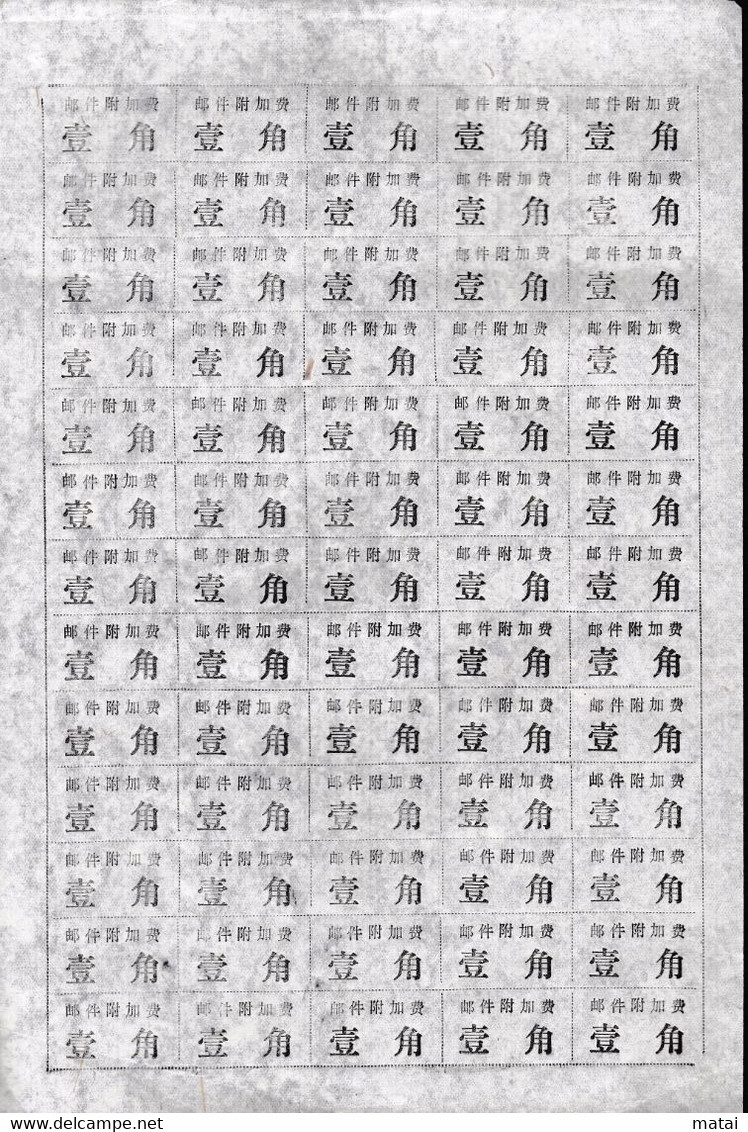 邮件附加费 邮件附加费 邮件附加费 邮件附加费 邮件附加费
壹 角 壹 角 壹 角 壹 角 壹 角
邮件附加费 邮件附加费 邮件附加费 邮件附加费 邮件附加费
壹 角 壹 角 壹 角 壹 角 壹 角
邮件附加费 邮件附加费 邮件附加费 邮件附加费 邮件附加费
壹 角 壹 角 壹 角 壹 角 壹 角
邮件附加费 邮件附加费 邮件附加费 邮件附加费 邮件附加费
壹 角 壹 角 壹 角 壹 角 壹 角
邮件附加费 邮件附加费 邮件附加费 邮件附加费 邮件附加费
壹 角 壹 角 壹 角 壹 角 壹 角
邮件附加费 邮件附加费 邮件附加费 邮件附加费 邮件附加费
壹 角 壹 角 壹 角 壹 角 壹 角
邮件附加费 邮件附加费 邮件附加费 邮件附加费 邮件附加费
壹 角 壹 角 壹 角 壹 角 壹 角
邮件附加费 邮件附加费 邮件附加费 邮件附加费 邮件附加费
壹 角 壹 角 壹 角 壹 角 壹 角
邮件附加费 邮件附加费 邮件附加费 邮件附加费 邮件附加费
壹 角 壹 角 壹 角 壹 角 壹 角
邮件附加费 邮件附加费 邮件附加费 邮件附加费 邮件附加费
壹 角 壹 角 壹 角 壹 角 壹 角
邮件附加费 邮件附加费 邮件附加费 邮件附加费 邮件附加费
壹 角 壹 角 壹 角 壹 角 壹 角
邮件附加费 邮件附加费 邮件附加费 邮件附加费 邮件附加费
壹 角 壹 角 壹 角 壹 角 壹 角
邮件附加费 邮件附加费 邮件附加费 邮件附加费 邮件附加费
壹 角 壹 角 壹 角 壹 角 壹 角
delcampe.net matai